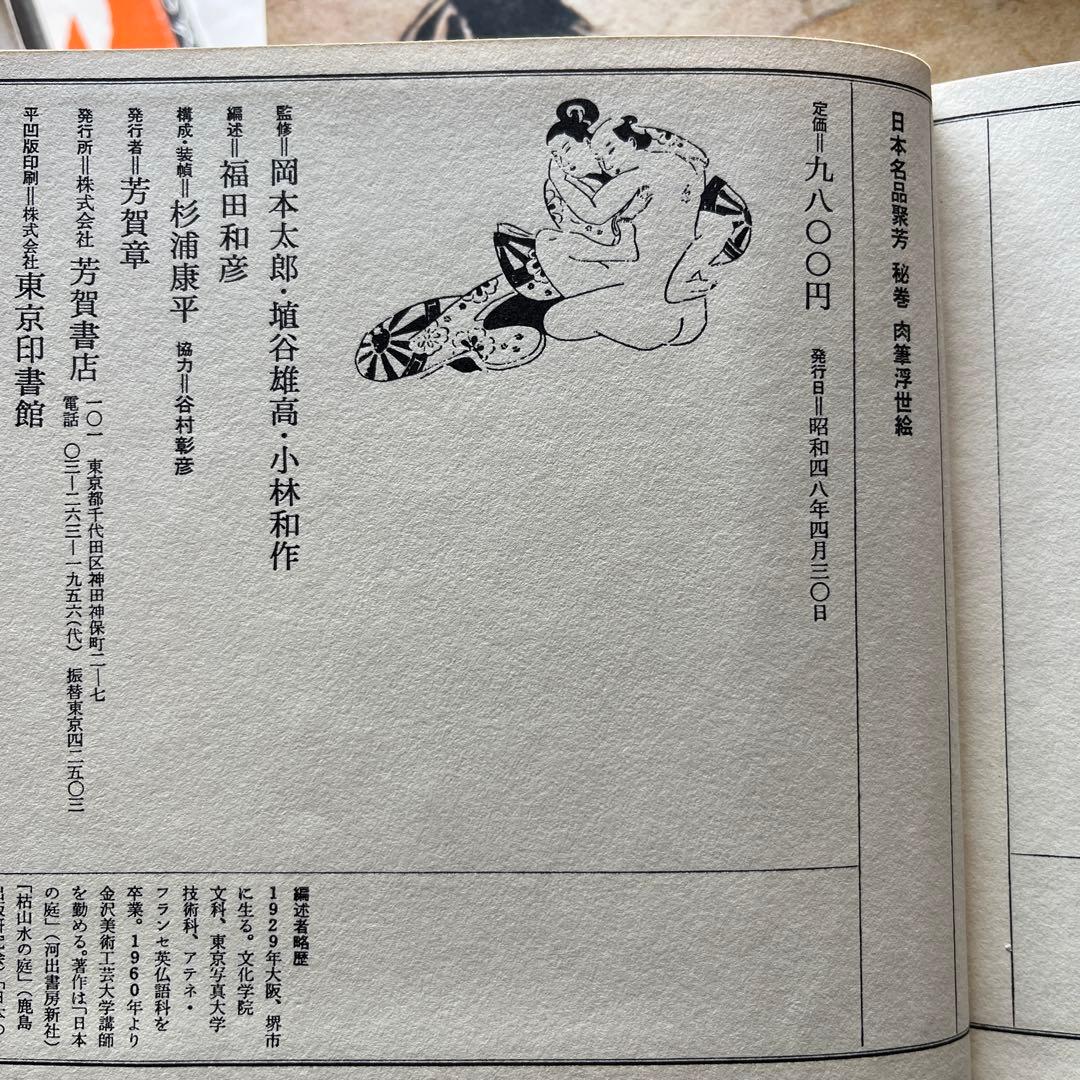 日本名品聚芳 秘巻 肉筆浮世絵
定価＝九八〇〇円 発行日＝昭和四八年四月三〇日
監修＝岡本太郎・埴谷雄高・小林和作
編述＝福田和彦
構成・装幀＝杉浦康平 協力＝谷村彰彦
発行者＝芳賀章
発行所＝株式会社 芳賀書店
一〇一 東京都千代田区神田神保町二―七
電話 〇三―二六三―一九五六（代） 振替東京四二五〇三
平凹版印刷＝株式会社東京印書館
編述者略歴
1929年大阪、堺市
に生る。文化学院
文科、東京写真大学
技術科、アテネ・
フランセ英仏語科を
卒業。1960年より
金沢美術工芸大学講師
を勤める。著作は「日本
の庭」（河出書房新社）
「枯山水の庭」（鹿島